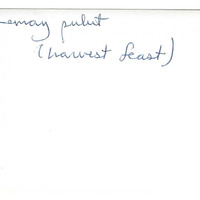 emay pulut
(harvest feast)